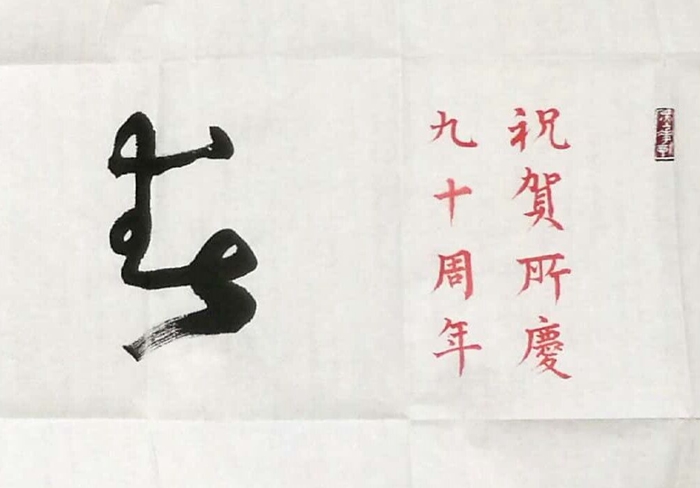 祝賀所慶
九十周年